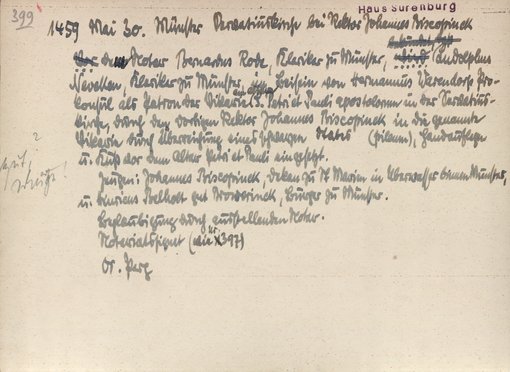 399
Haus Surenburg
1459 Mai 30. Münster Servatiuskirche bei Rektor Johannes Biscopinck
Vor dem Notar Bernardus Rode, Kleriker zu Münster, wird Ludolphus
Kleriker zu Münster, im Beisein von Hermannus Warendorp Pro-
konsul als Patron der Vikarie S. Petri et Pauli apostolorum in der Servatius-
kirche, durch den dortigen Rektor Johannes Biscopinck in die genannte
Vikarie durch Überreichung eines schwarzen (pileum), Handauflegen
u. Kuß vor dem Altar Petri et Pauli eingesetzt.
Zeugen: Johannes Biscopinck, Dekan zu St Marien in Überwasser binnen Münster,
u. Henricus gen Bürger zu Münster.
Beglaubigung durch ausstellenden Notar.
Notariatssignet (wie nr 397)
Or. Perg